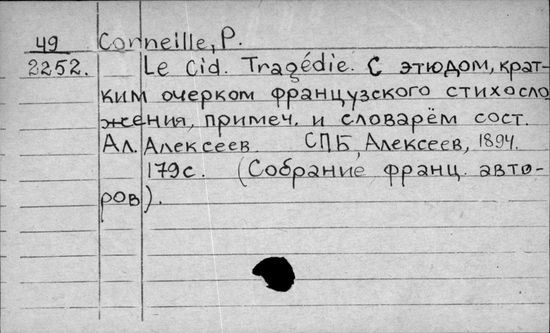 49 Corneille, P.
2252. Le Cid. Tragédie. С этюдом, крат-
ким очерком французского стихосло
жения, примеч. и словарём сост.
Ал. Алексеев. СПБ, Алексеев, 1894.
179с. (Собрание франц. авто-
ров).